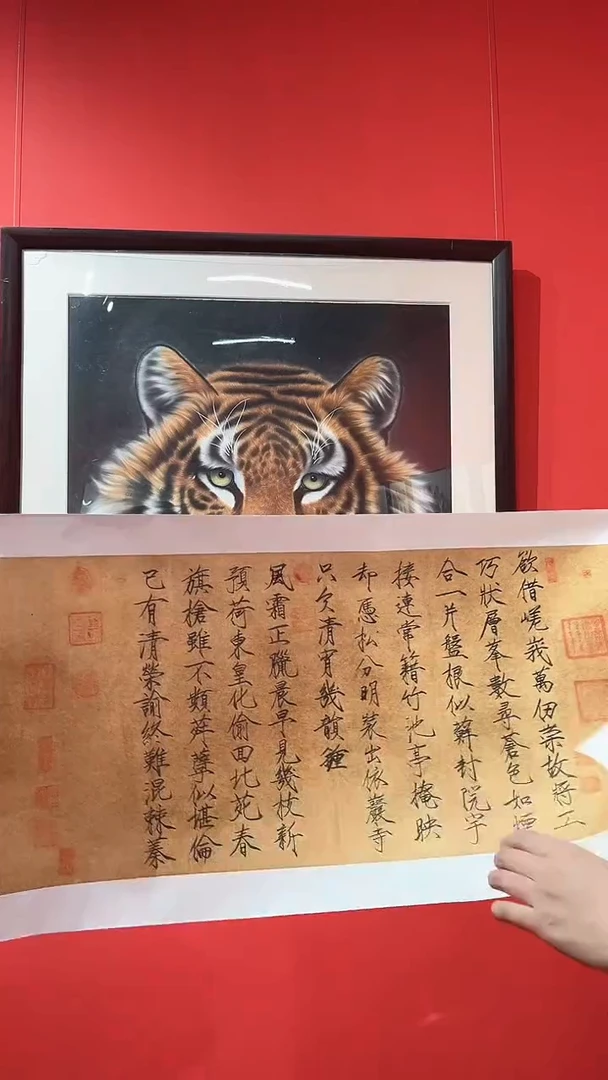 欲借嵯峩萬仞崇故将工
巧狀層峯數尋蒼色如煙
合一片盤根似蘚封院宇
接連常籍竹池亭掩映
却憑松分明裝出依巖寺
只欠清宵幾韻鍾
風霜正臘晨早見幾枝新
預荷東皇化偷回北苑春
旗槍雖不類荈蘖似堪倫
已有清榮諭終難混棘蓁